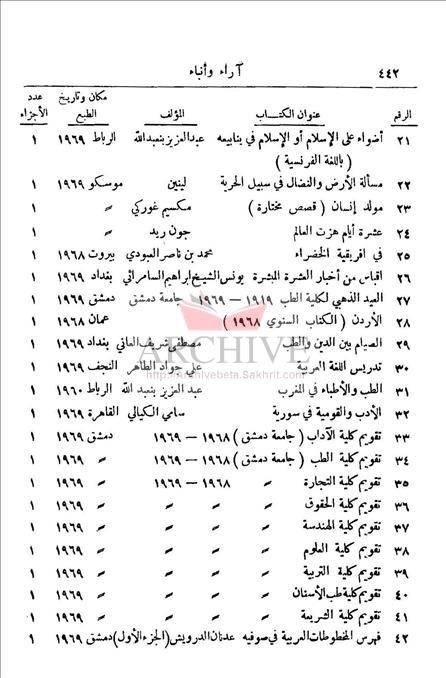 ٤٤٢ آراء وأنباء
الرقم عنوان الكتــاب المؤلف مكان وتاريخ الطبع عدد الأجزاء
٢١ أضواء على الإسلام أو الإسلام في ينابيعه عبد العزيز بنعبد الله الرباط ١٩٦٩ ١
( باللغة الفرنسية )
٢٢ مسألة الأرض والنضال في سبيل الحرية لينين موسكو ١٩٦٩ ١
٢٣ مولد إنسان ( قصص مختارة ) مكسيم غوركي » ١
٢٤ عشرة أيام هزت العالم جون ريد » ١
٢٥ في افريقية الخضراء محمد بن ناصر العبودي بيروت ١٩٦٨ ١
٢٦ اقباس من أخبار العشرة المبشرة يونس الشيخ ابراهيم السامرائي بغداد ١٩٦٩ ١
٢٧ العيد الذهبي لكلية الطب ١٩١٩ — ١٩٦٩ جامعة دمشق دمشق ١٩٦٩ ١
٢٨ الأردن ( الكتاب السنوي ١٩٦٨ ) عمان ١٩٦٨ ١
٢٩ الصيام بين الدين والطب مصطفى شريف العاني بغداد ١٩٦٩ ١
٣٠ تدريس اللغة العربية علي جواد الطاهر النجف ١٩٦٩ ١
٣١ الطب والأطباء في المغرب عبد العزيز بنعبد الله الرباط ١٩٦٠ ١
٣٢ الأدب والقومية في سورية سامي الكيالي القاهرة ١٩٦٩ ١
٣٣ تقويم كلية الآداب ( جامعة دمشق ) ١٩٦٨ — ١٩٦٩ دمشق ١٩٦٩ ١
٣٤ تقويم كلية الطب ( جامعة دمشق ) ١٩٦٨ — ١٩٦٩ » ١٩٦٩ ١
٣٥ تقويم كلية التجارة » ١٩٦٨ — ١٩٦٩ » ١٩٦٩ ١
٣٦ تقويم كلية الحقوق » » » » ١٩٦٩ ١
٣٧ تقويم كلية الهندسة » » » » ١٩٦٩ ١
٣٨ تقويم كلية العلوم » » » » ١٩٦٩ ١
٣٩ تقويم كلية التربية » » » » ١٩٦٩ ١
٤٠ تقويم كلية طب الأسنان » » » » ١٩٦٩ ١
٤١ تقويم كلية الشريعة » » » » ١٩٦٩ ١
٤٢ فهرس المخطوطات العربية في صوفيه عدنان الدرويش ( الجزء الأول ) دمشق ١٩٦٩ ١
ARCHIVE
http://Archivebeta.Sakhrit.com